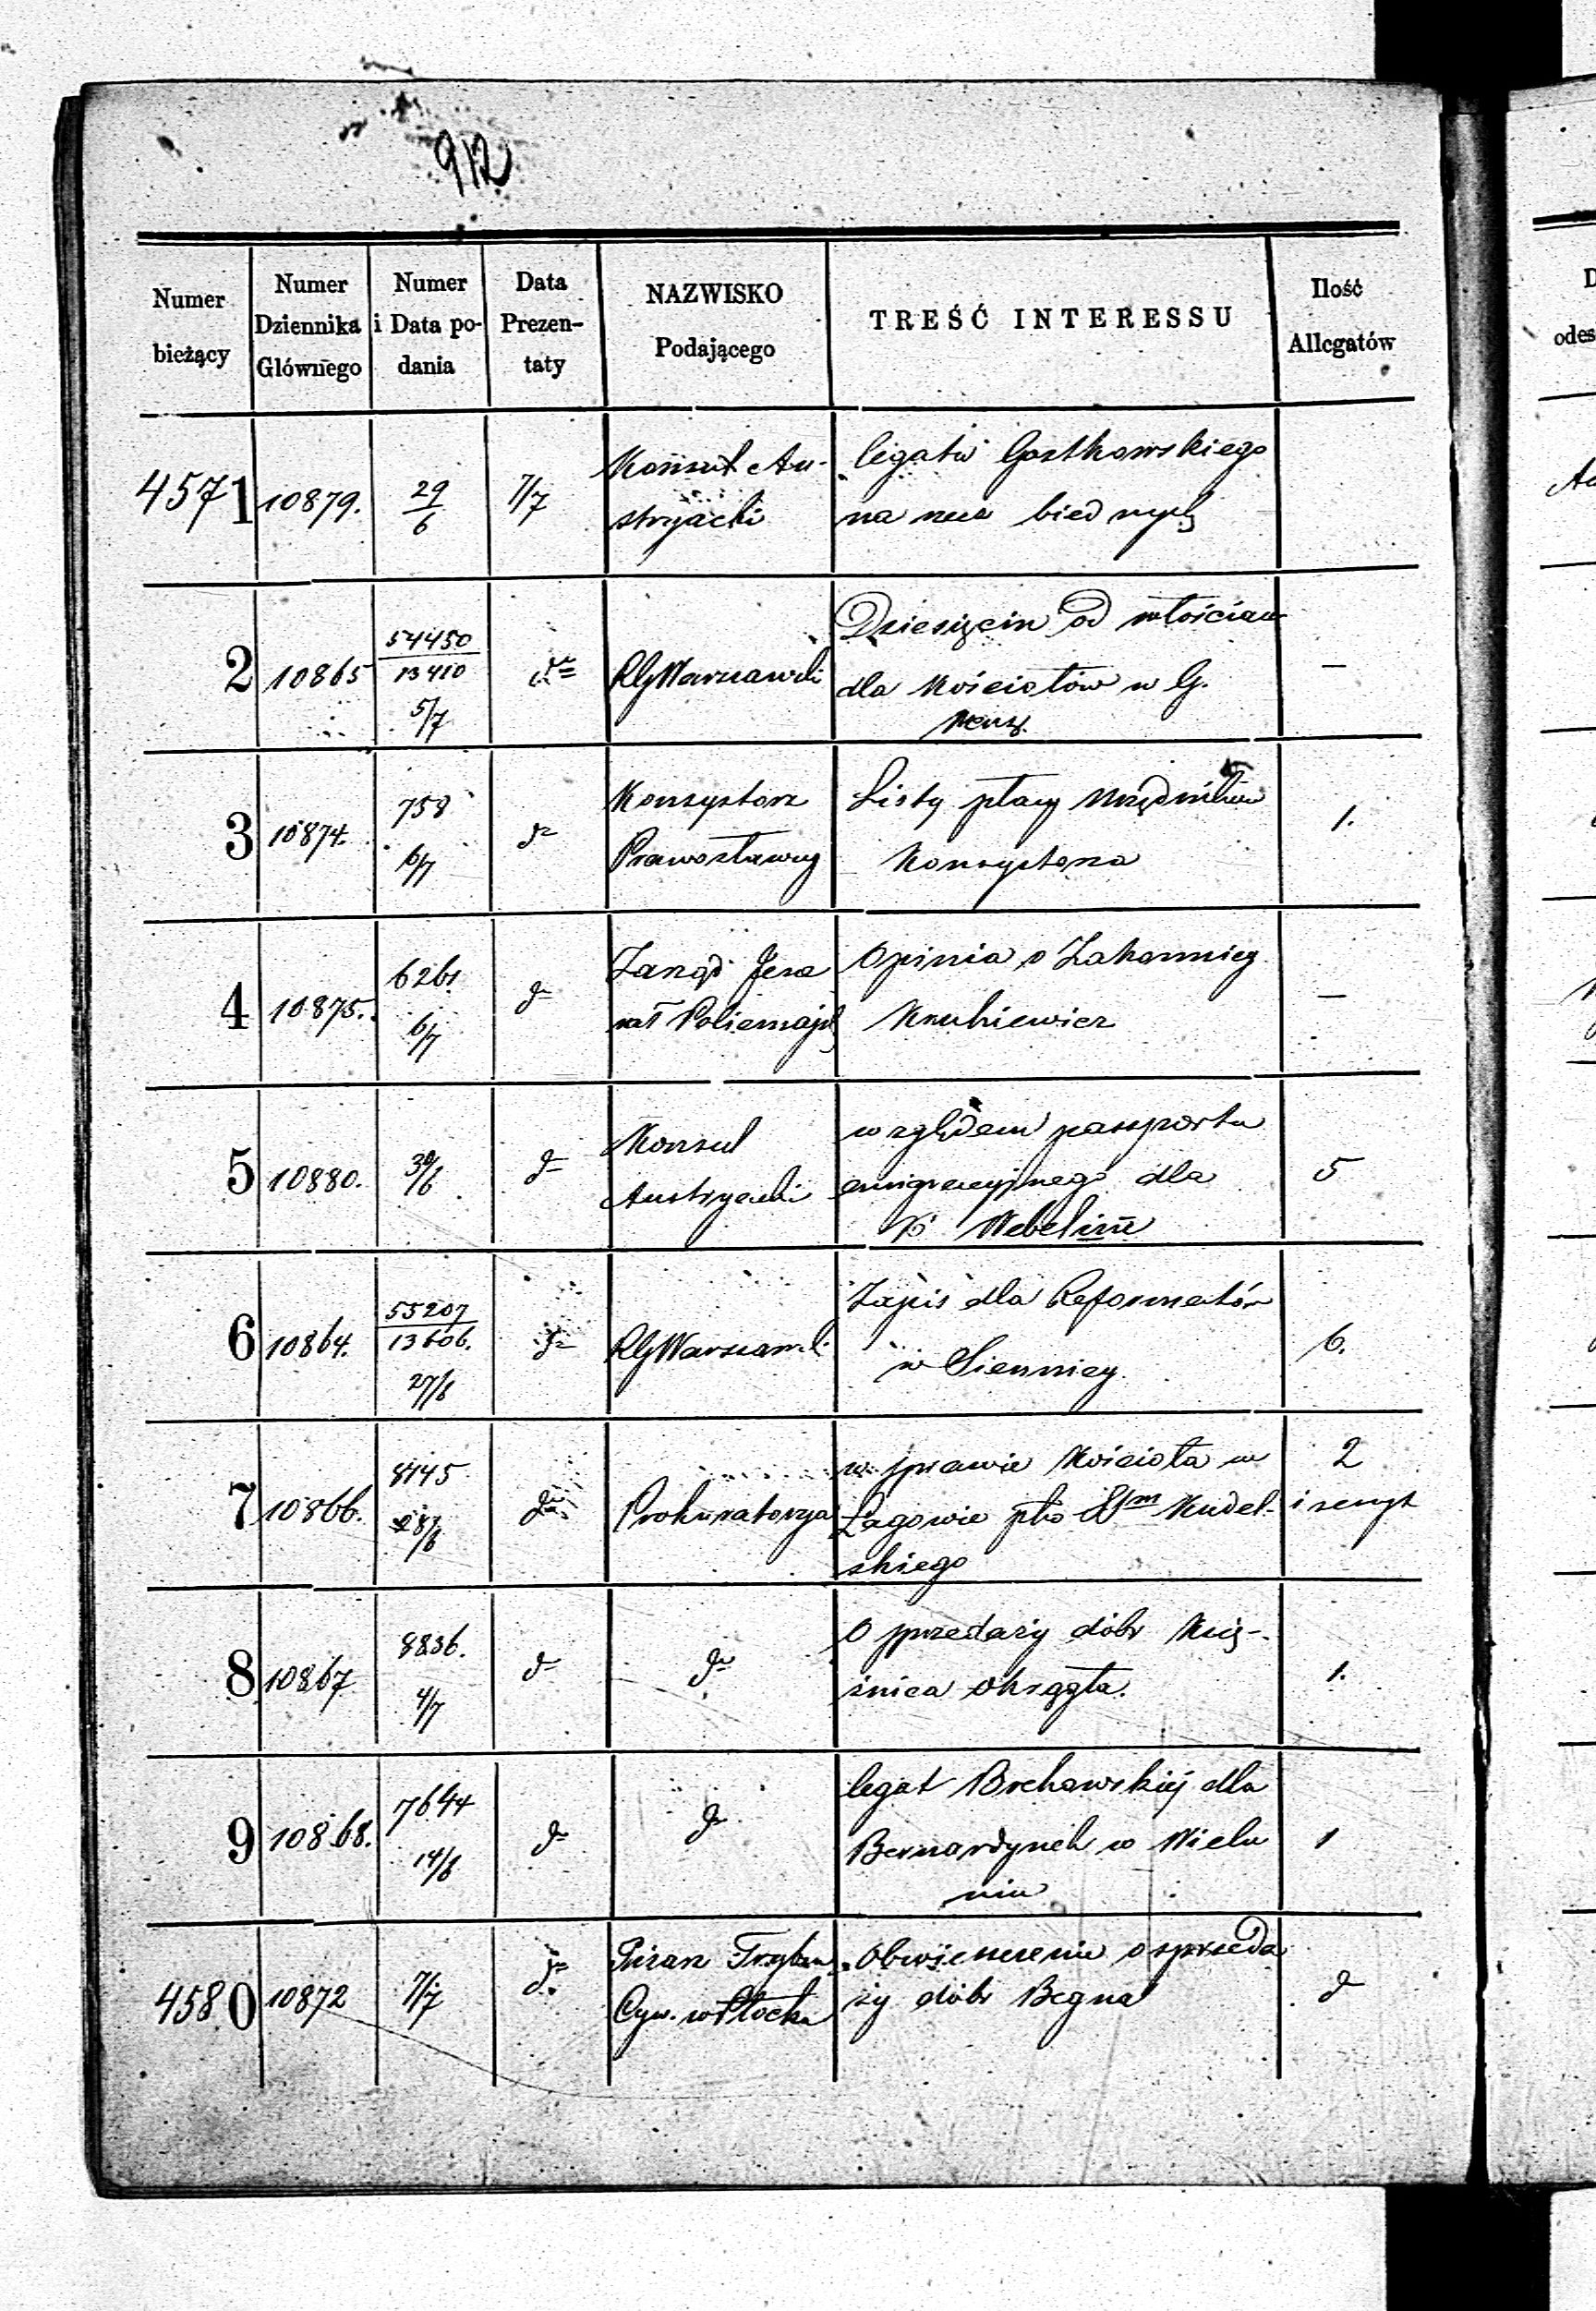 912
Numer bieżący
Numer Dziennika Głównego
Numer i Data podania
Data Prezentaty
NAZWISKO Podającego
TREŚĆ INTERESSU
Ilość Allegatów
4571 10879. 29/6 7/7
Konsul Au-
stryacki
legatu Gostkowskiego
na rzecz biednych
2 10865 54450/13410 5/7 do RGWarszawski
Dziesięcin od włościan
dla Kościołów w G.
–
3 10874. 758 6/7 do
Konsystorz
Prawosławny
Listy płacy Urzędników
Konsystorza
1.
4 10875. 6261 6/7 do
Zarząd Jene
rał Policmajst
Opinia o Zakonnicy
–
5 10880. 30/6 do
Konsul
Austryacki
względem passportu
emigracyjnego dla
5
6 10864. 55207/13606. 27/6 do RGWarszawski
Zapis dla Reformatów
w Siennicy.
6.
7 10866. 8145 28/6 do Prokuratorya
w sprawie Kościoła w
Łagowie pko Kudel-
skiego
2
8 10867 8836. 4/7 do do
O sprzedaży dóbr Księ-
źnica Okrągła.
1.
9 10868. 7644 14/6 do do
legat Brchowskiéj dla
Bernardynek w Wielu
niu
1
4580 10872 7/7 do
Pisarz Trybun.
Cyw. w Płocku
Obwieszczenie o sprzeda
ży dóbr Begna